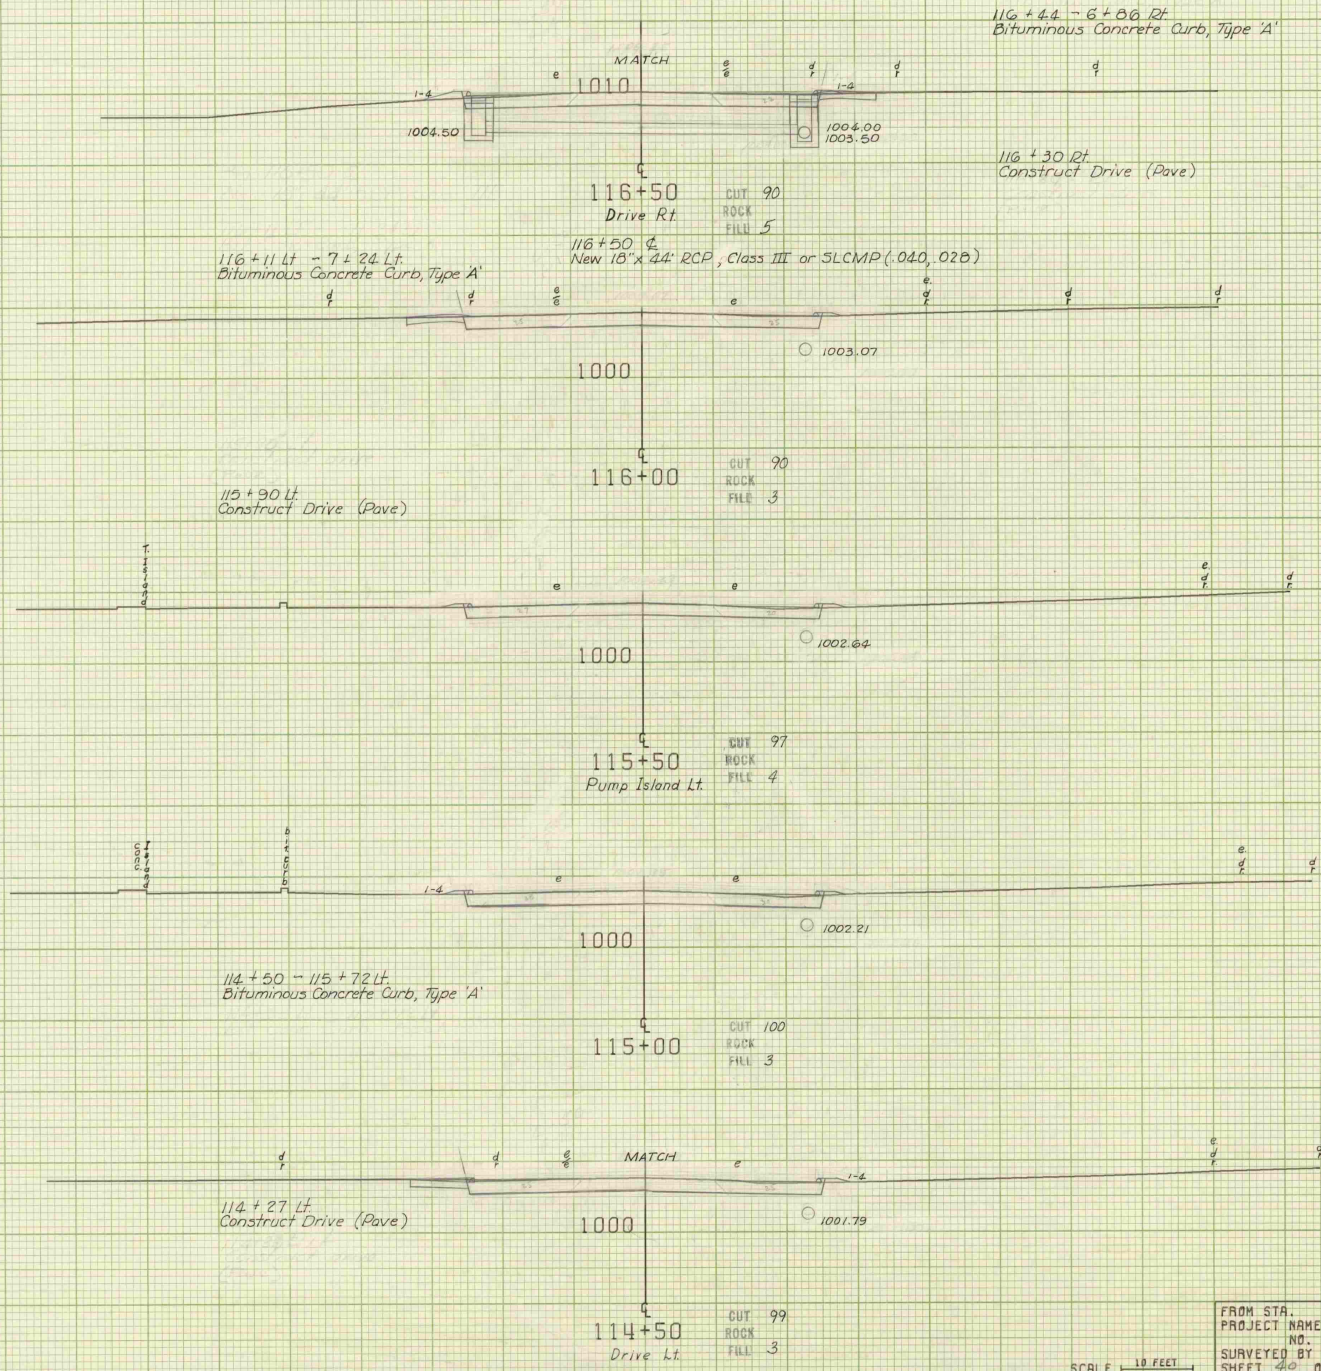 116 + 44 - 6 + 86 Rt.
Bituminous Concrete Curb, Type 'A'
MATCH
e
e/e
d/r
d/r
d/r
1-4
1010
1-4
1004.50
1004.00
1003.50
116 + 30 Rt.
Construct Drive (Pave)
℄
116+50
Drive Rt.
CUT 90
ROCK
FILL 5
116 + 50 ℄
New 18" x 44' RCP, Class III or SLCMP (.040, 028)
116 + 11 Lt - 7 + 24 Lt.
Bituminous Concrete Curb, Type 'A'
d/r
d/r
e/e
e
e.
d/r
d/r
d/r
1003.07
1000
℄
116+00
CUT 90
ROCK
FILL 3
115 + 90 Lt.
Construct Drive (Pave)
T. Island
e
e
e.
d/r.
d/r
1002.64
1000
℄
115+50
Pump Island Lt.
CUT 97
ROCK
FILL 4
conc. Island
bit curb
1-4
e
e
e.
d/r.
d/r
1002.21
1000
114 + 50 - 115 + 72 Lt.
Bituminous Concrete Curb, Type 'A'
℄
115+00
CUT 100
ROCK
FILL 3
d/r
d/r
e/e
MATCH
e
e.
d/r.
1-4
114 + 27 Lt.
Construct Drive (Pave)
1000
1001.79
℄
114+50
Drive Lt.
CUT 99
ROCK
FILL 3
FROM STA.
PROJECT NAME
NO.
SURVEYED BY
SCALE 10 FEET
SHEET 40